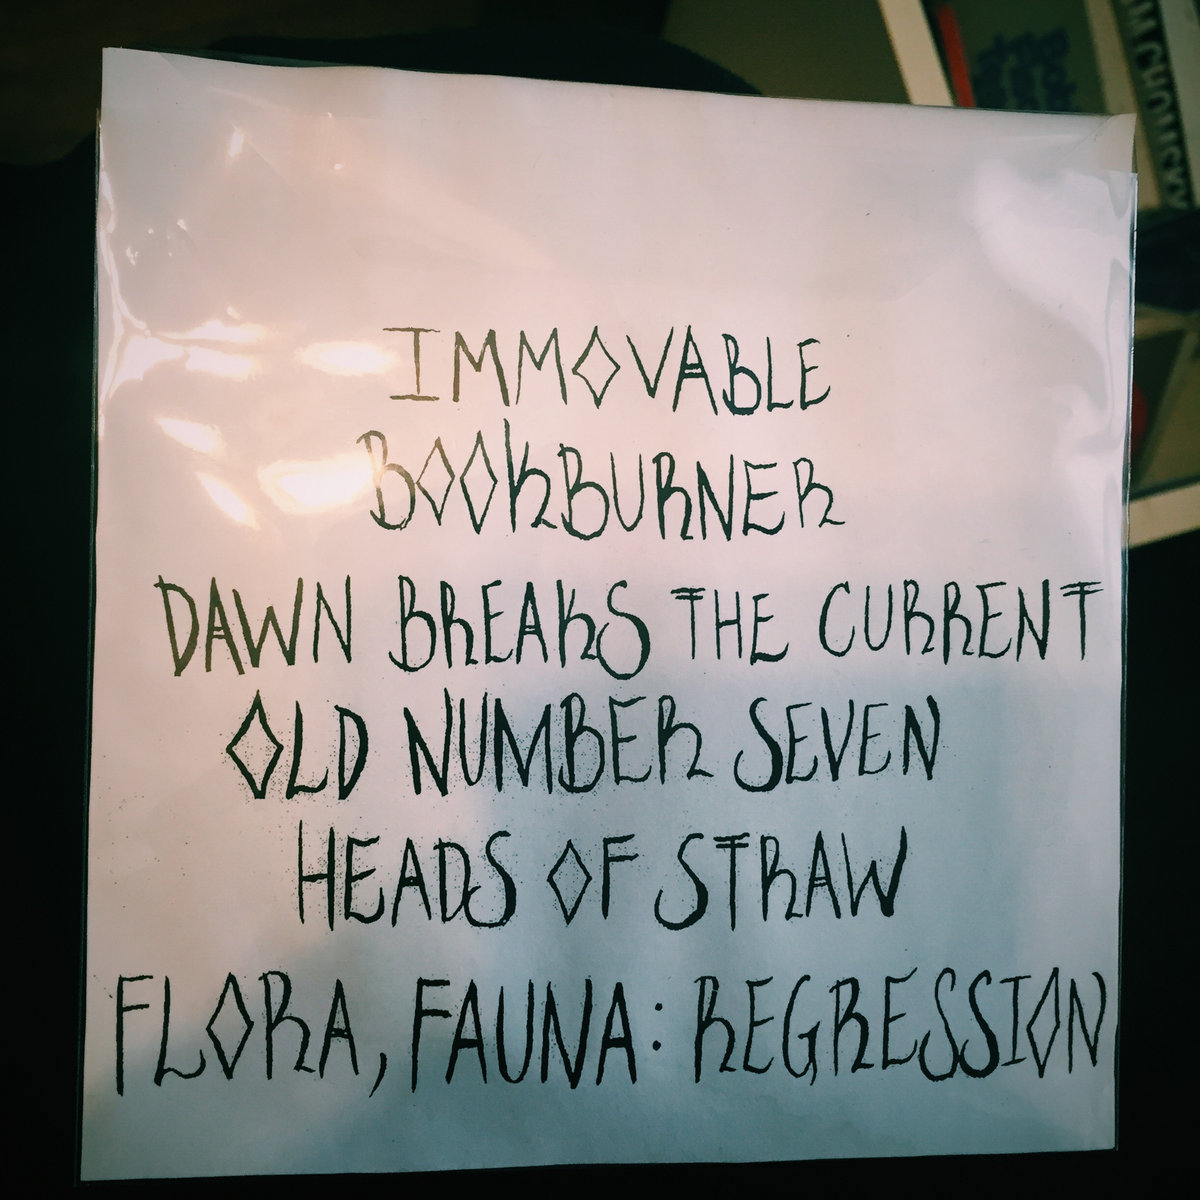 IMMOVABLE
BOOKBURNER
DAWN BREAKS THE CURRENT
OLD NUMBER SEVEN
HEADS OF STRAW
FLORA, FAUNA: REGRESSION
CHOMSKY